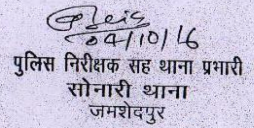 04/10/16
पुलिस निरीक्षक सह थाना प्रभारी
सोनारी थाना
जमशेदपुर